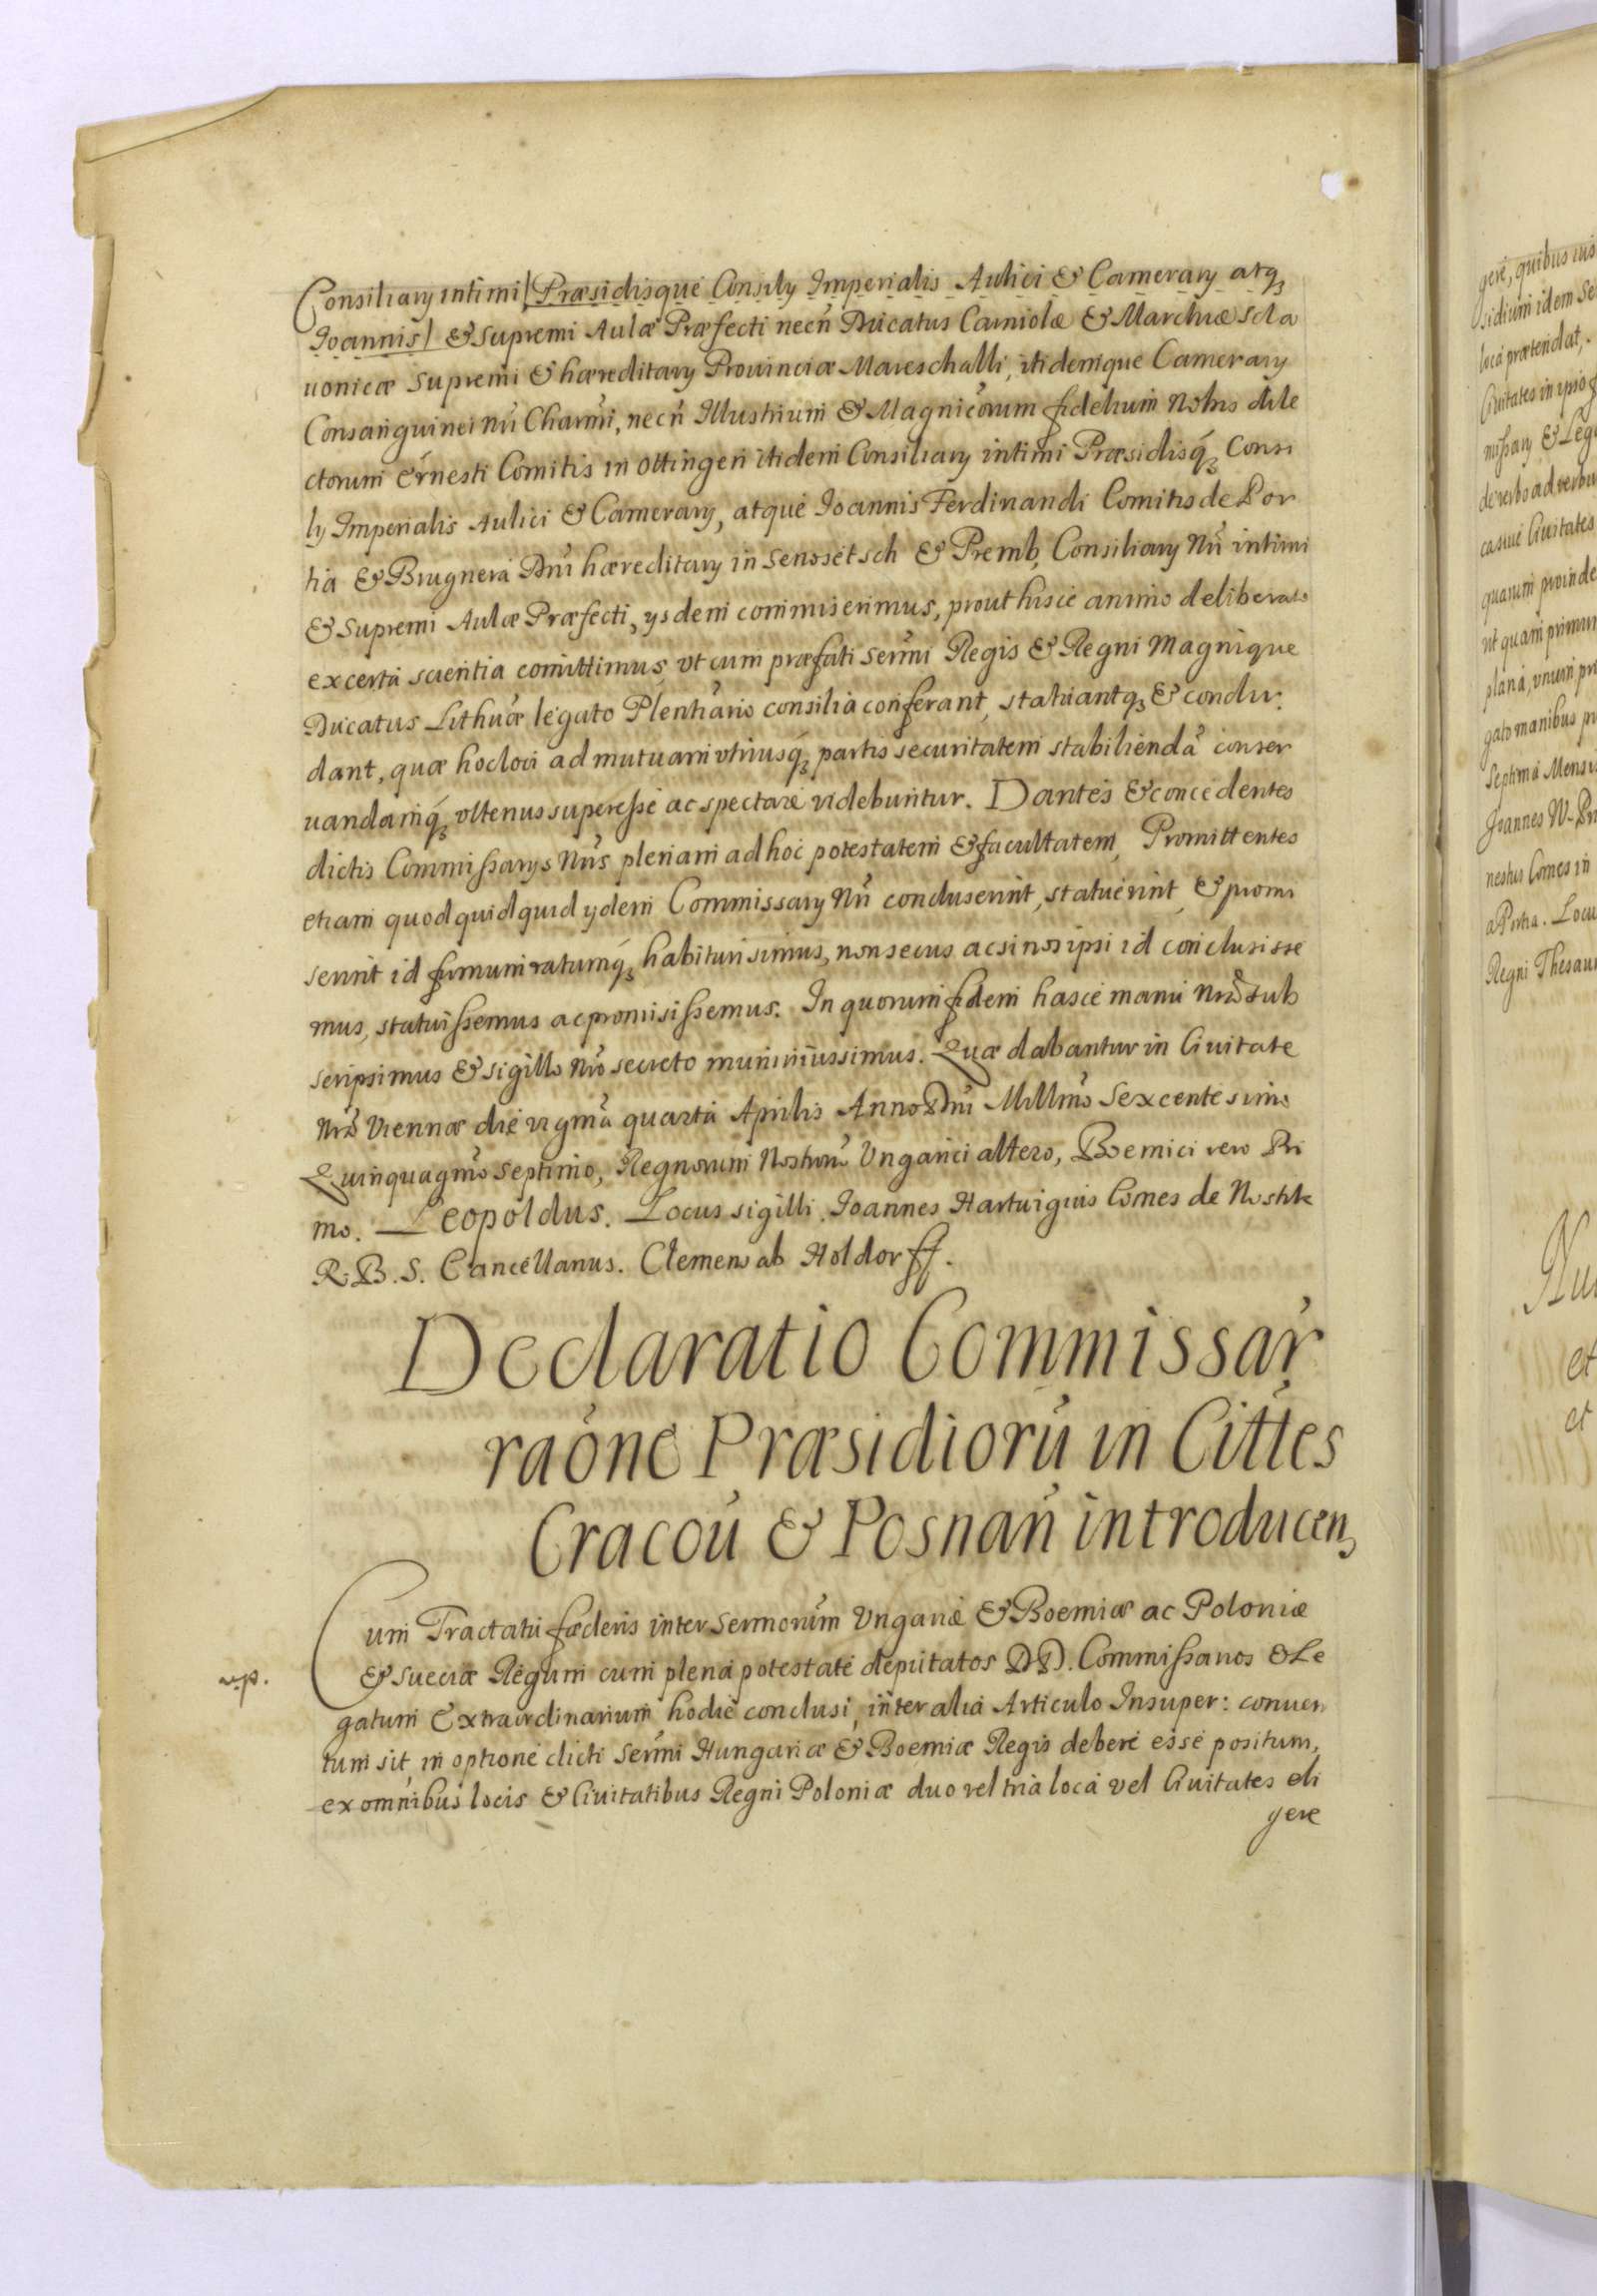 Consiliarÿ intimi | Præsidisque Consilÿ Imperialis Aulici & Camerarÿ atq₃
Joannis | & supremi Aulæ Præfecti necñ Ducatus Carniolæ & Marchiæ Scla
uonicæ supremi & hæreditarÿ Prouinciæ Mareschalli, itidemque Camerarÿ
Consanguinei nr̃i Charmĩ, necñ Illustrium & Magnicõrum fidelium Nostros dile
ctorum Ernesti Comitis in Ottingen itidem Consiliarÿ intimi Præsidisq₃ Consi
lÿ Imperialis Aulici & Camerarÿ, atque Joannis Ferdinandi Comitis de Por
tia & Brugnera Dnĩ hæreditarÿ in Senosetsch & Premb, Consiliarÿ Nr̃i intimi
& Supremi Aulæ Præfecti, ÿsdem commiserimus, prout hisce animo deliberato
ex certa scientia comittimus, vt cum præfati Sermĩ Regis & Regni Magnique
Ducatus Lithuæ̃ legato Plentiãrio consilia conferant, statuantq₃ & conclu:
dant, quæ hocloci ad mutuam vtriusq₃ partis securitatem stabiliendã conser
uandamq₃ vltenus superesse ac spectare videbuntur. Dantes & concedentes
dictis Commissarÿs Nr̃is plenam ad hoc potestatem & facultatem, Promittentes
etiam quod quidquid ÿdem Commissarÿ Nr̃i concluserint, statuerint, & promi
serint id firmum ratumq₃ habituri simus, non secus ac si nos ipsi id conclusisse
mus, statuissemus ac promisissemus. In quorum fidem hasce manu Nrã sub
scripsimus & sigillo Nrõ secreto muniuiussimus. Quæ dabantur in Ciuitate
Nrã Viennæ die vigmã quarta Aprilis Anno Dnĩ Millmõ Sexcentesimo
Quinquagmõ septimo, Regnorum Nostrorũ Vngarici altero, Boemici vero Pri
mo. — Leopoldus. Locus sigilli. Joannes Hartuigius Comes de Nostitz
R. B. S. Cancellarius. Clemens ab Holdorff.
Declaratio Commissar̃
raõne Præsidiorũ in Cittẽs
Cracoũ & Posnañ introducen₃
Cum Tractatu fæderis inter Sermorũm Vngariæ & Boemiæ ac Poloniæ
& Sueciæ Regum cum plena potestate deputatos DD. Commissarios & Le
np.
gatum Extraordinarium hodie conclusi, inter alia Articulo Insuper: conuen
tum sit, in optione dicti Sermĩ Hungariæ & Boemiæ Regis debere esse positum,
ex omnibus locis & Ciuitatibus Regni Poloniæ duo vel tria loca vel Ciuitates eli
gere
gere, quibus ius
sidium idem Se
loca prætendat,
Ciuitates in ipso
missarÿ & Leg
de verbo ad verbu
casuue Ciuitates
quarum proinde
vt quam primum
plana, vnum pr
gato manibus pr
Septima Mensis
Joannes W. Pr
nestus Comes in
a Portia. Locu
Regni Thesaur
Nu
et
et